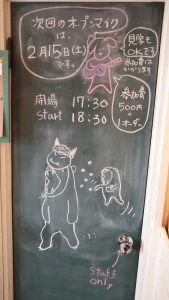 次回のオープンマイクは、
2月15日(土)
です。
見学も
OKです
参加費は
かかります
開場 17:30
start 18:30
参加費
500円
+
1オーダー
staff
only